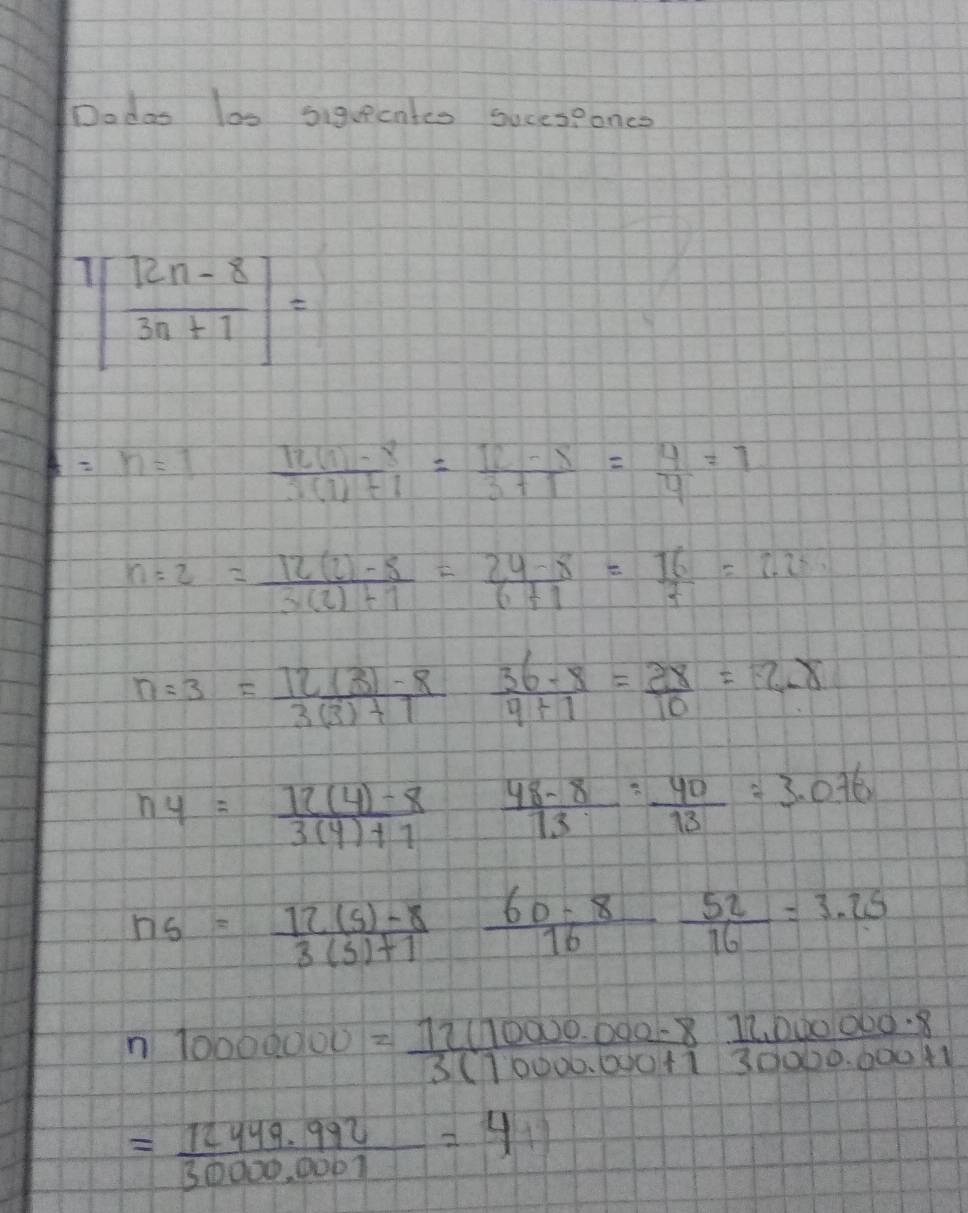 Dadas las siguientes sucesiones
1 [12n - 8 / 3n + 1] =
= n = 1 12(1) - 8 / 3(1) + 1 = 12 - 8 / 3 + 1 = 4/4 = 1
n = 2 = 12(2) - 8 / 3(2) + 1 = 24 - 8 / 6 + 1 = 16/7 =
n = 3 = 12(3) - 8 / 3(3) + 1 36 - 8 / 9 + 1 = 28/10 = 2.8
n4 = 12(4) - 8 / 3(4) + 1 48 - 8 / 13 = 40/13 = 3.076
n5 = 12(5) - 8 / 3(5) + 1 60 - 8 / 16 52/16 = 3.25
n 10000000 = 12(10000.000 - 8 / 3(10000.000 + 1 12.000000 - 8 / 30000.000 + 1
= 12449.992 / 30000.0001 = 4